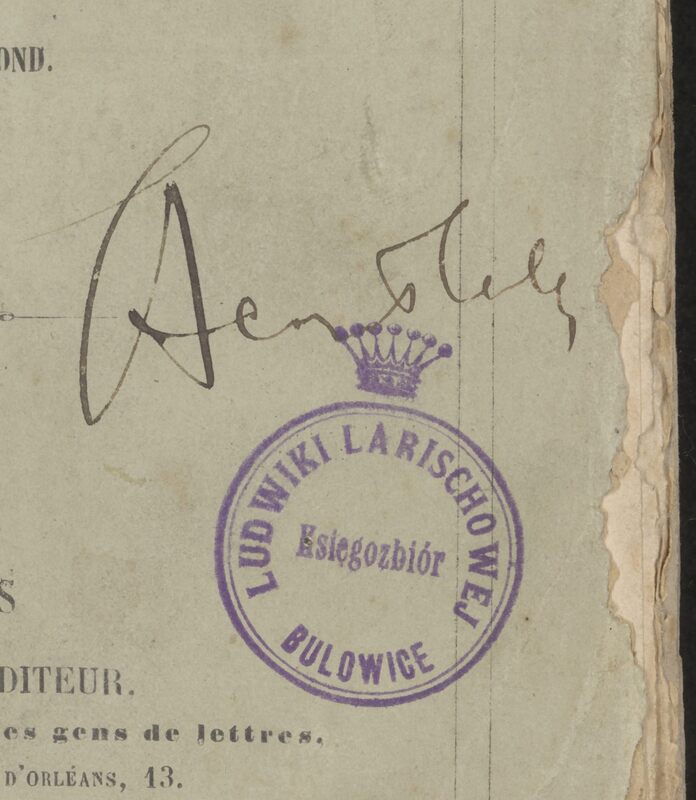 OND.
LUDWIKI LARISCHOWEJ
Księgozbiór
BULOWICE
S
DITEUR.
es gens de lettres.
D'ORLÉANS, 13.